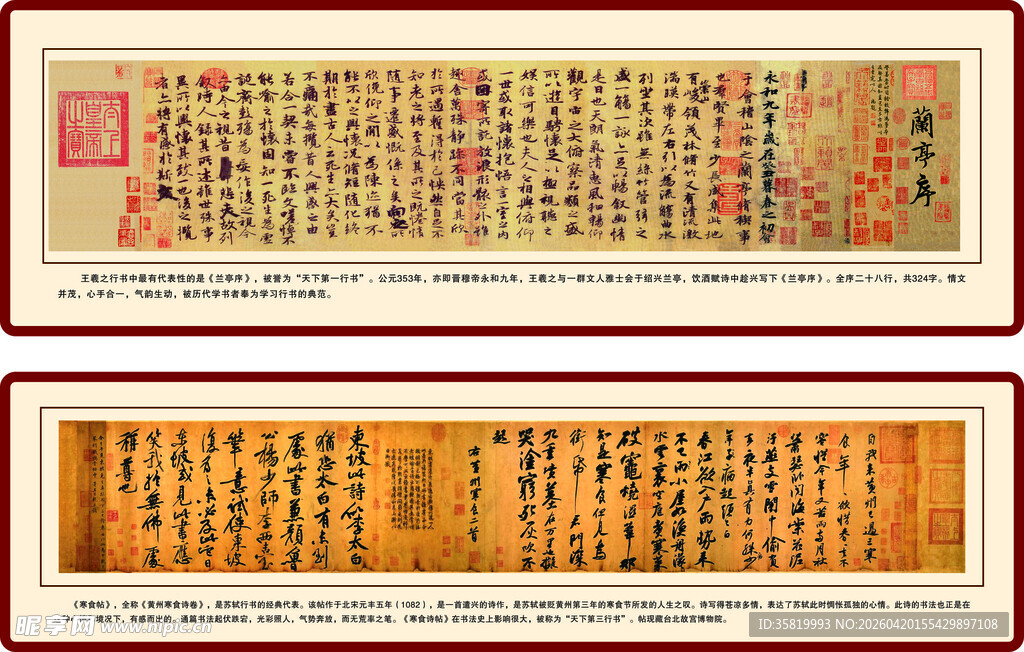 蘭亭序
永和九年歲在癸丑暮春之初會
于會稽山陰之蘭亭脩稧事
也羣賢畢至少長咸集此地
有崇山峻領茂林脩竹又有清流激
湍暎帶左右引以為流觴曲水
列坐其次雖無絲竹管弦之
盛一觴一詠亦足以暢敘幽情
是日也天朗氣清惠風和暢仰
觀宇宙之大俯察品類之盛
所以遊目騁懷足以極視聽之
娛信可樂也夫人之相與俯仰
一世或取諸懷抱悟言一室之內
或因寄所託放浪形骸之外雖
趣舍萬殊靜躁不同當其欣
於所遇暫得於己怏然自足不
知老之將至及其所之既惓情
隨事遷感慨係之矣向之所
欣俛仰之閒以為陳迹猶不
能不以之興懷況脩短隨化終
期於盡古人云死生亦大矣豈
不痛哉每攬昔人興感之由
若合一契未嘗不臨文嗟悼不
能喻之於懷固知一死生為虛
誕齊彭殤為妄作後之視今
亦由今之視昔悲夫故列
敘時人錄其所述雖世殊事
異所以興懷其致一也後之攬
者亦將有感於斯文
王羲之行书中最有代表性的是《兰亭序》，被誉为“天下第一行书”。公元353年，亦即晋穆帝永和九年，王羲之与一群文人雅士会于绍兴兰亭，饮酒赋诗中趁兴写下《兰亭序》。全序二十八行，共324字。情文
并茂，心手合一，气韵生动，被历代学书者奉为学习行书的典范。
自我來黃州已過三寒
食年年欲惜春春去不
容惜今年又苦雨兩月秋
蕭瑟臥聞海棠花泥
汙燕支雪闇中偷負
去夜半真有力何殊少
年病起頭已白
春江欲入戶雨勢來
不已雨小屋如漁舟濛濛
水雲裏空庖煮寒菜
破竈燒濕葦那
知是寒食但見烏
銜帋君門深
九重墳墓在万里也擬
哭塗窮死灰吹不
起
右黃州寒食二首
東坡此詩似李太白
猶恐太白有未到
處此書兼顏魯
公楊少師李西臺
筆意試使東坡
復為之未必及此它日
東坡或見此書應
笑我於無佛處
稱尊也
《寒食帖》，全称《黄州寒食诗卷》，是苏轼行书的经典代表。该帖作于北宋元丰五年（1082），是一首遣兴的诗作，是苏轼被贬黄州第三年的寒食节所发的人生之叹。诗写得苍凉多情，表达了苏轼此时惆怅孤独的心情。此诗的书法也正是在
境况下，有感而出的。通篇书法起伏跌宕，光彩照人，气势奔放，而无荒率之笔。《寒食诗帖》在书法史上影响很大，被称为“天下第三行书”。帖现藏台北故宫博物院。
昵享网 www.nipic.cn
ID:35819993 NO:20260420155429897108